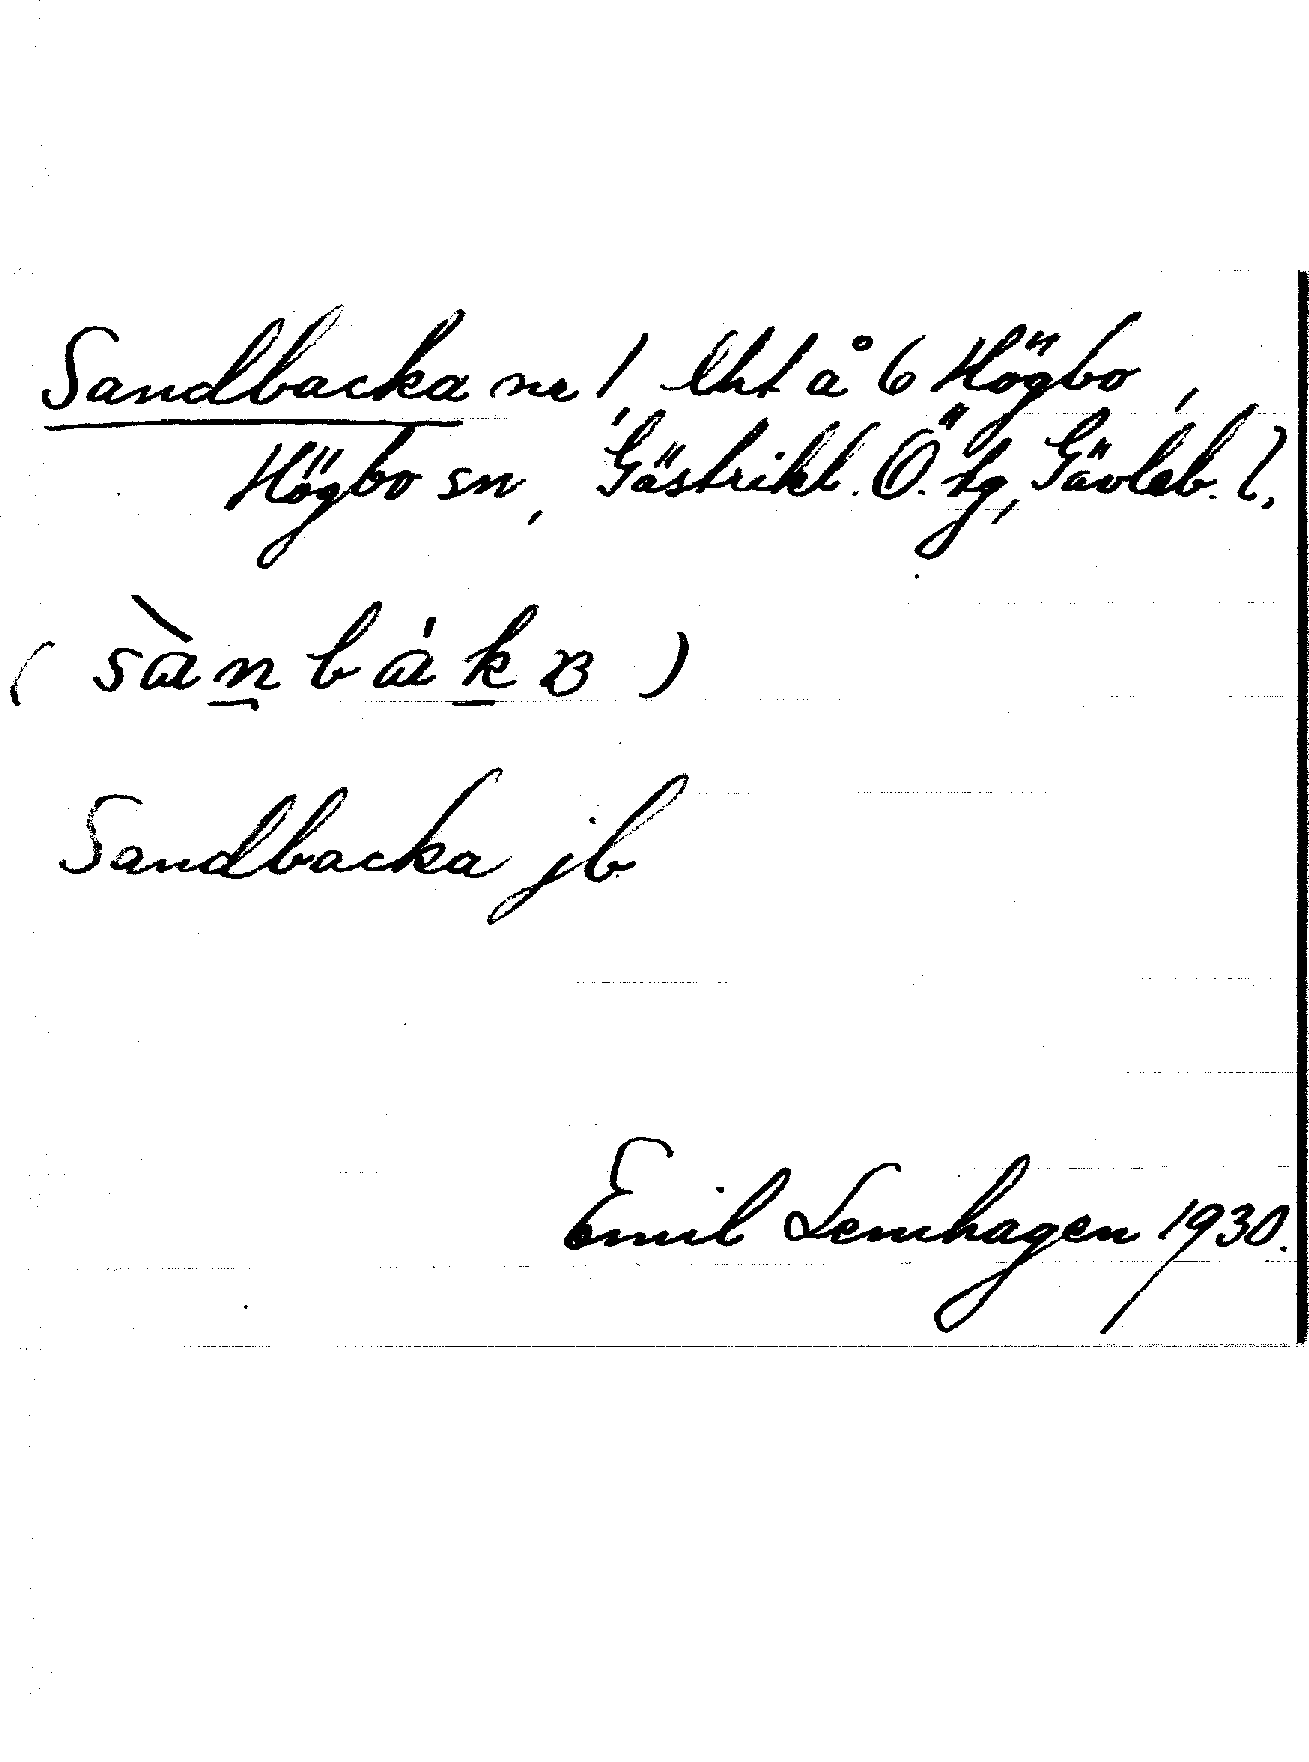 Sandbacka nr 1, lht å 6 Högbo,
Högbo sn, Gästrikl. Ö. tg, Gävleb. l.
(sànbákɐ)
Sandbacka jb
Emil Lemhagen 1930.